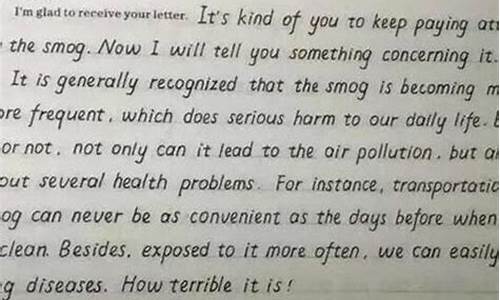 I'm glad to receive your letter. It's kind of you to keep paying
the smog. Now I will tell you something concerning it.
It is generally recognized that the smog is becoming
frequent, which does serious harm to our daily life.
or not, not only can it lead to the air pollution, but
several health problems. For instance,
can never be as convenient as the days before when
clean. Besides, exposed to it more often, we can easily
diseases. How terrible it is!